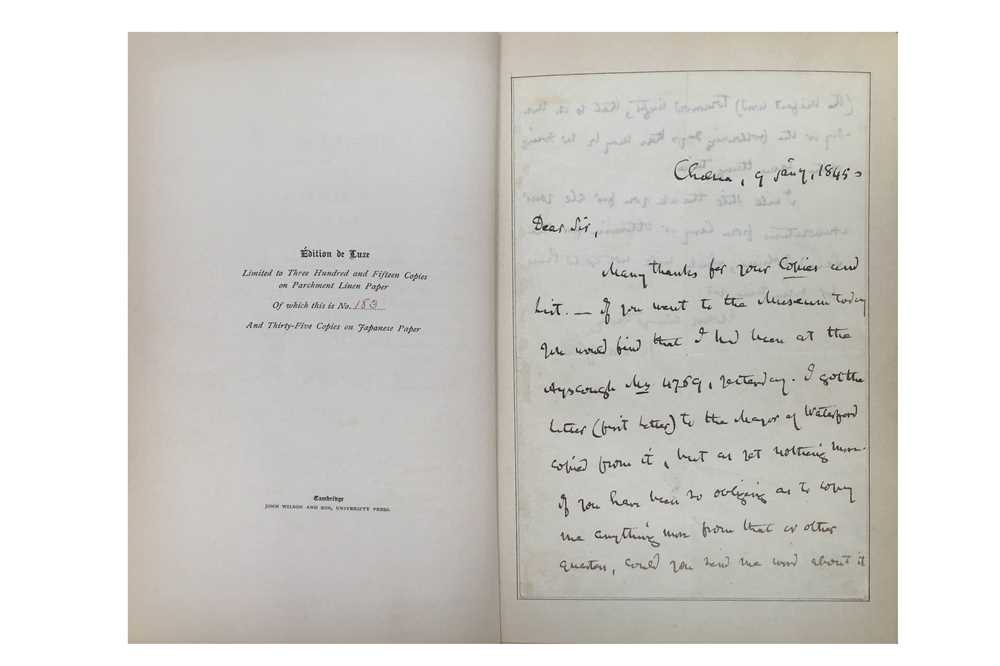 Édition de Luxe
Limited to Three Hundred and Fifteen Copies
on Parchment Linen Paper
Of which this is No. 153
And Thirty-Five Copies on Japanese Paper
Cambridge
JOHN WILSON AND SON, UNIVERSITY PRESS.
Chelsea, 9 Jany, 1845 –
Dear Sir,
Many thanks for your Copies and
List. — If you went to the Museum today
you would find that I had been at the
Ayscough Ms 4769, yesterday. I got the
Letter (first Letter) to the Mayor of Waterford
copied from it, but as yet nothing more.
If you have been so obliging as to copy
me anything more from that or other
quarters, could you send me word about it